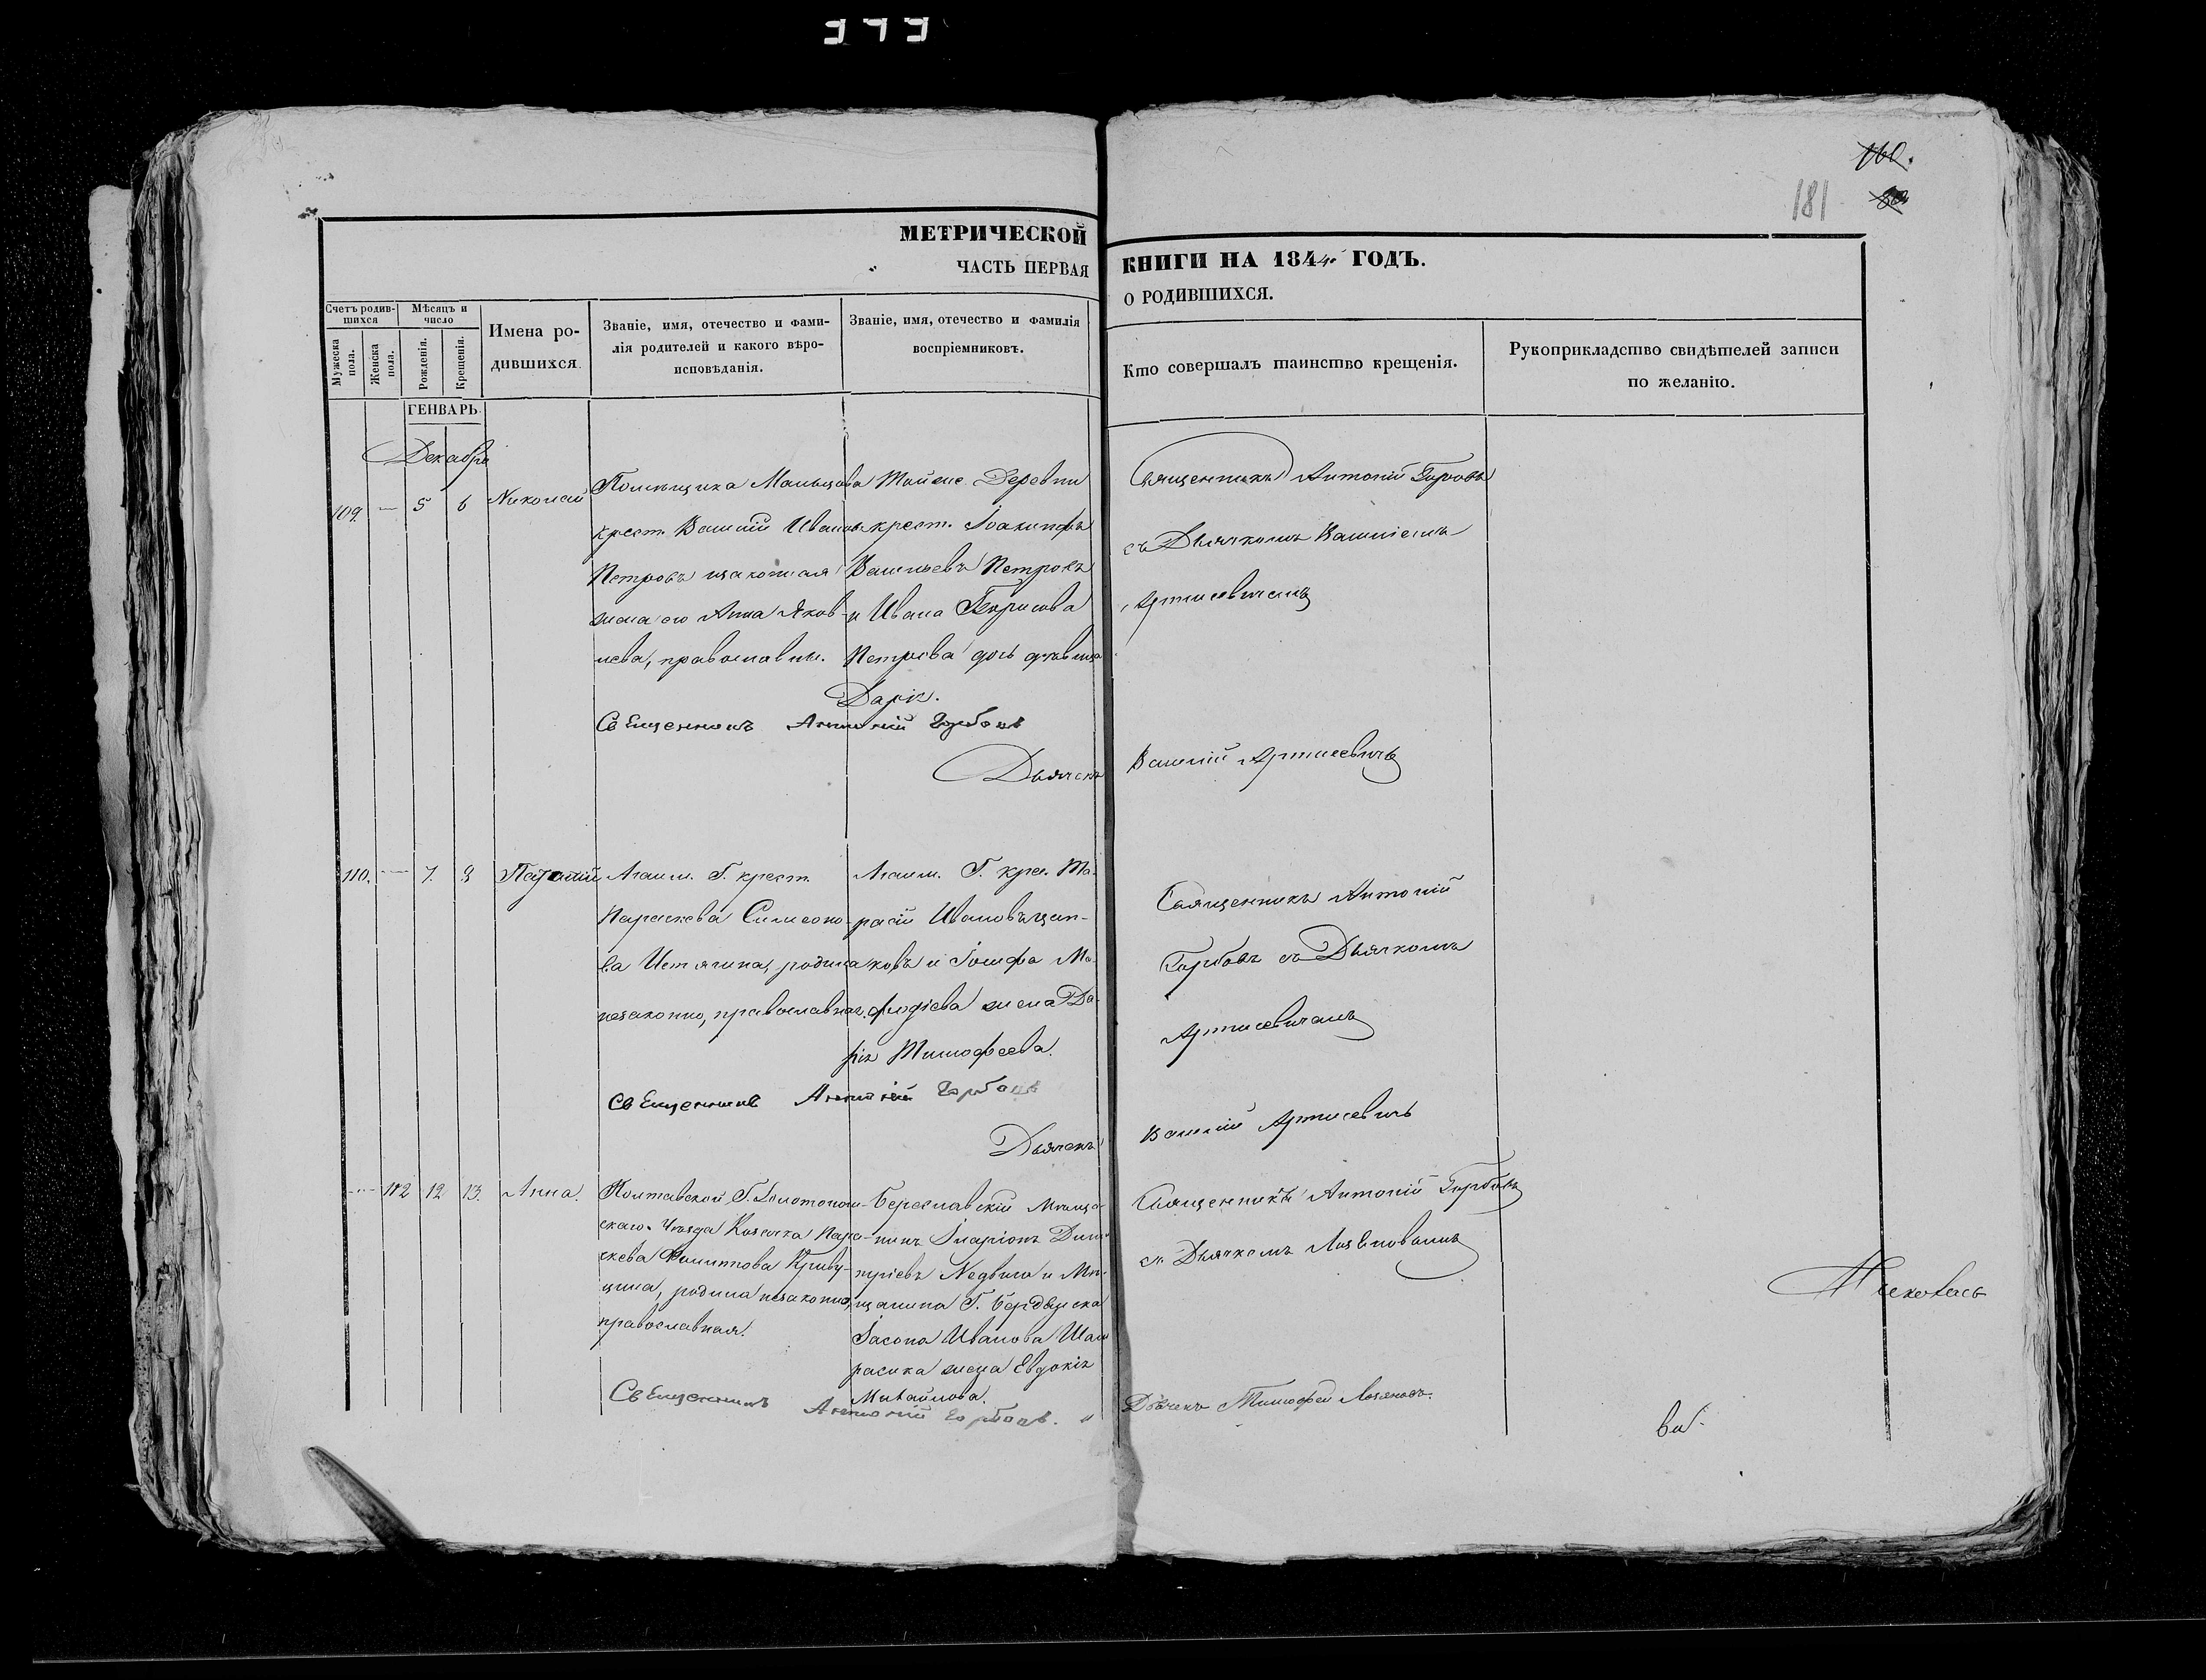 373
160.
181
МЕТРИЧЕСКОЙ
КНИГИ НА 1844 ГОДЪ.
ЧАСТЬ ПЕРВАЯ
О РОДИВШИХСЯ.
Счетъ родив-
шихся
Мужеска пола.
Женска пола.
Мѣсяцъ и
число
Рожденія.
Крещенія.
Имена ро-
дившихся.
Званіе, имя, отечество и фами-
лія родителей и какого вѣро-
исповѣданія.
Званіе, имя, отечество и фамилія
воспріемниковъ.
Кто совершалъ таинство крещенія.
Рукоприкладство свидѣтелей записи
по желанію.
ГЕНВАРЬ.
Декабрь
109. — 5 6 Николай
Помѣщика Мальцова
крест. Василій Ивановъ
Петровъ и законная
жена его Анна Яков-
лева, православн.
Тойже Деревни
крест. Іоакинфъ
Васильевъ Петровъ
и Ивана Борисова
Петрова дочь
Дарія.
Священникъ Антоній Горбовъ
съ Дьячкомъ Василіемъ
Артисевичемъ
Священникъ Антоній Горбовъ
Дьячекъ Василій Артисевичъ
110. — 7. 9 Патапій
Г. крест.
Параскева Симеоно-
ва родила
незаконно, православная.
Г. крес. Та-
расій Ивановъ
и Іосифа Ме-
фодіева жена Да-
рія Тимофеева.
Священникъ Антоній
Горбовъ съ Дьячкомъ
Артисевичемъ
Священникъ Антоній Горбовъ
Дьячекъ Василій Артисевичъ
— 112 12 13. Анна.
Полтавской Г. Золотонош-
скаго Уѣзда Козачка Пара-
скева Филиппова
родила незаконно,
православная.
Береславскій Мѣща-
нинъ Іларіонъ Дими-
тріевъ и Мѣ-
щанина Г. Бердянска
Іасона Иванова
жена Евдокія
Михайлова.
Священникъ Антоній Горбовъ
съ Дьячкомъ
Священникъ Антоній Горбовъ. и
Дьячекъ Тимофей